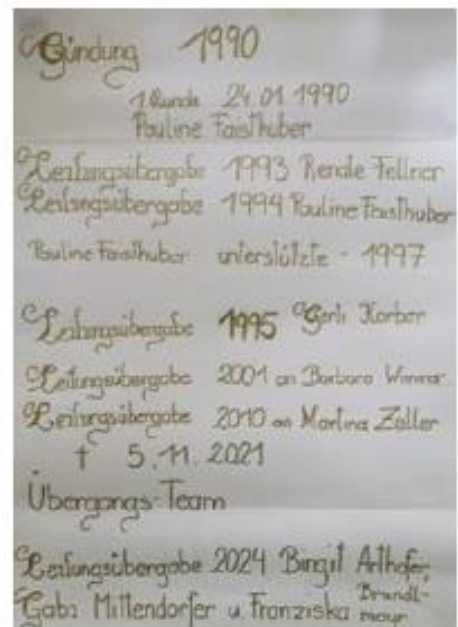 Gündung 1990
1. Runde 24.01.1990
Pauline Faisthuber
Leitungsübergabe 1993 Renate Fellner
Leitungsübergabe 1994 Pauline Faisthuber
Pauline Faisthuber unterstützte - 1997
Leitungsübergabe 1995 Gerti Korber
Leitungsübergabe 2001 an Barbara
Leitungsübergabe 2010 an Martina Zeller
† 5.11.2021
Übergangs-Team
Leitungsübergabe 2024 Birgit Arthofer,
Gabi Mittendorfer u. Franziska Brandl-
mayr